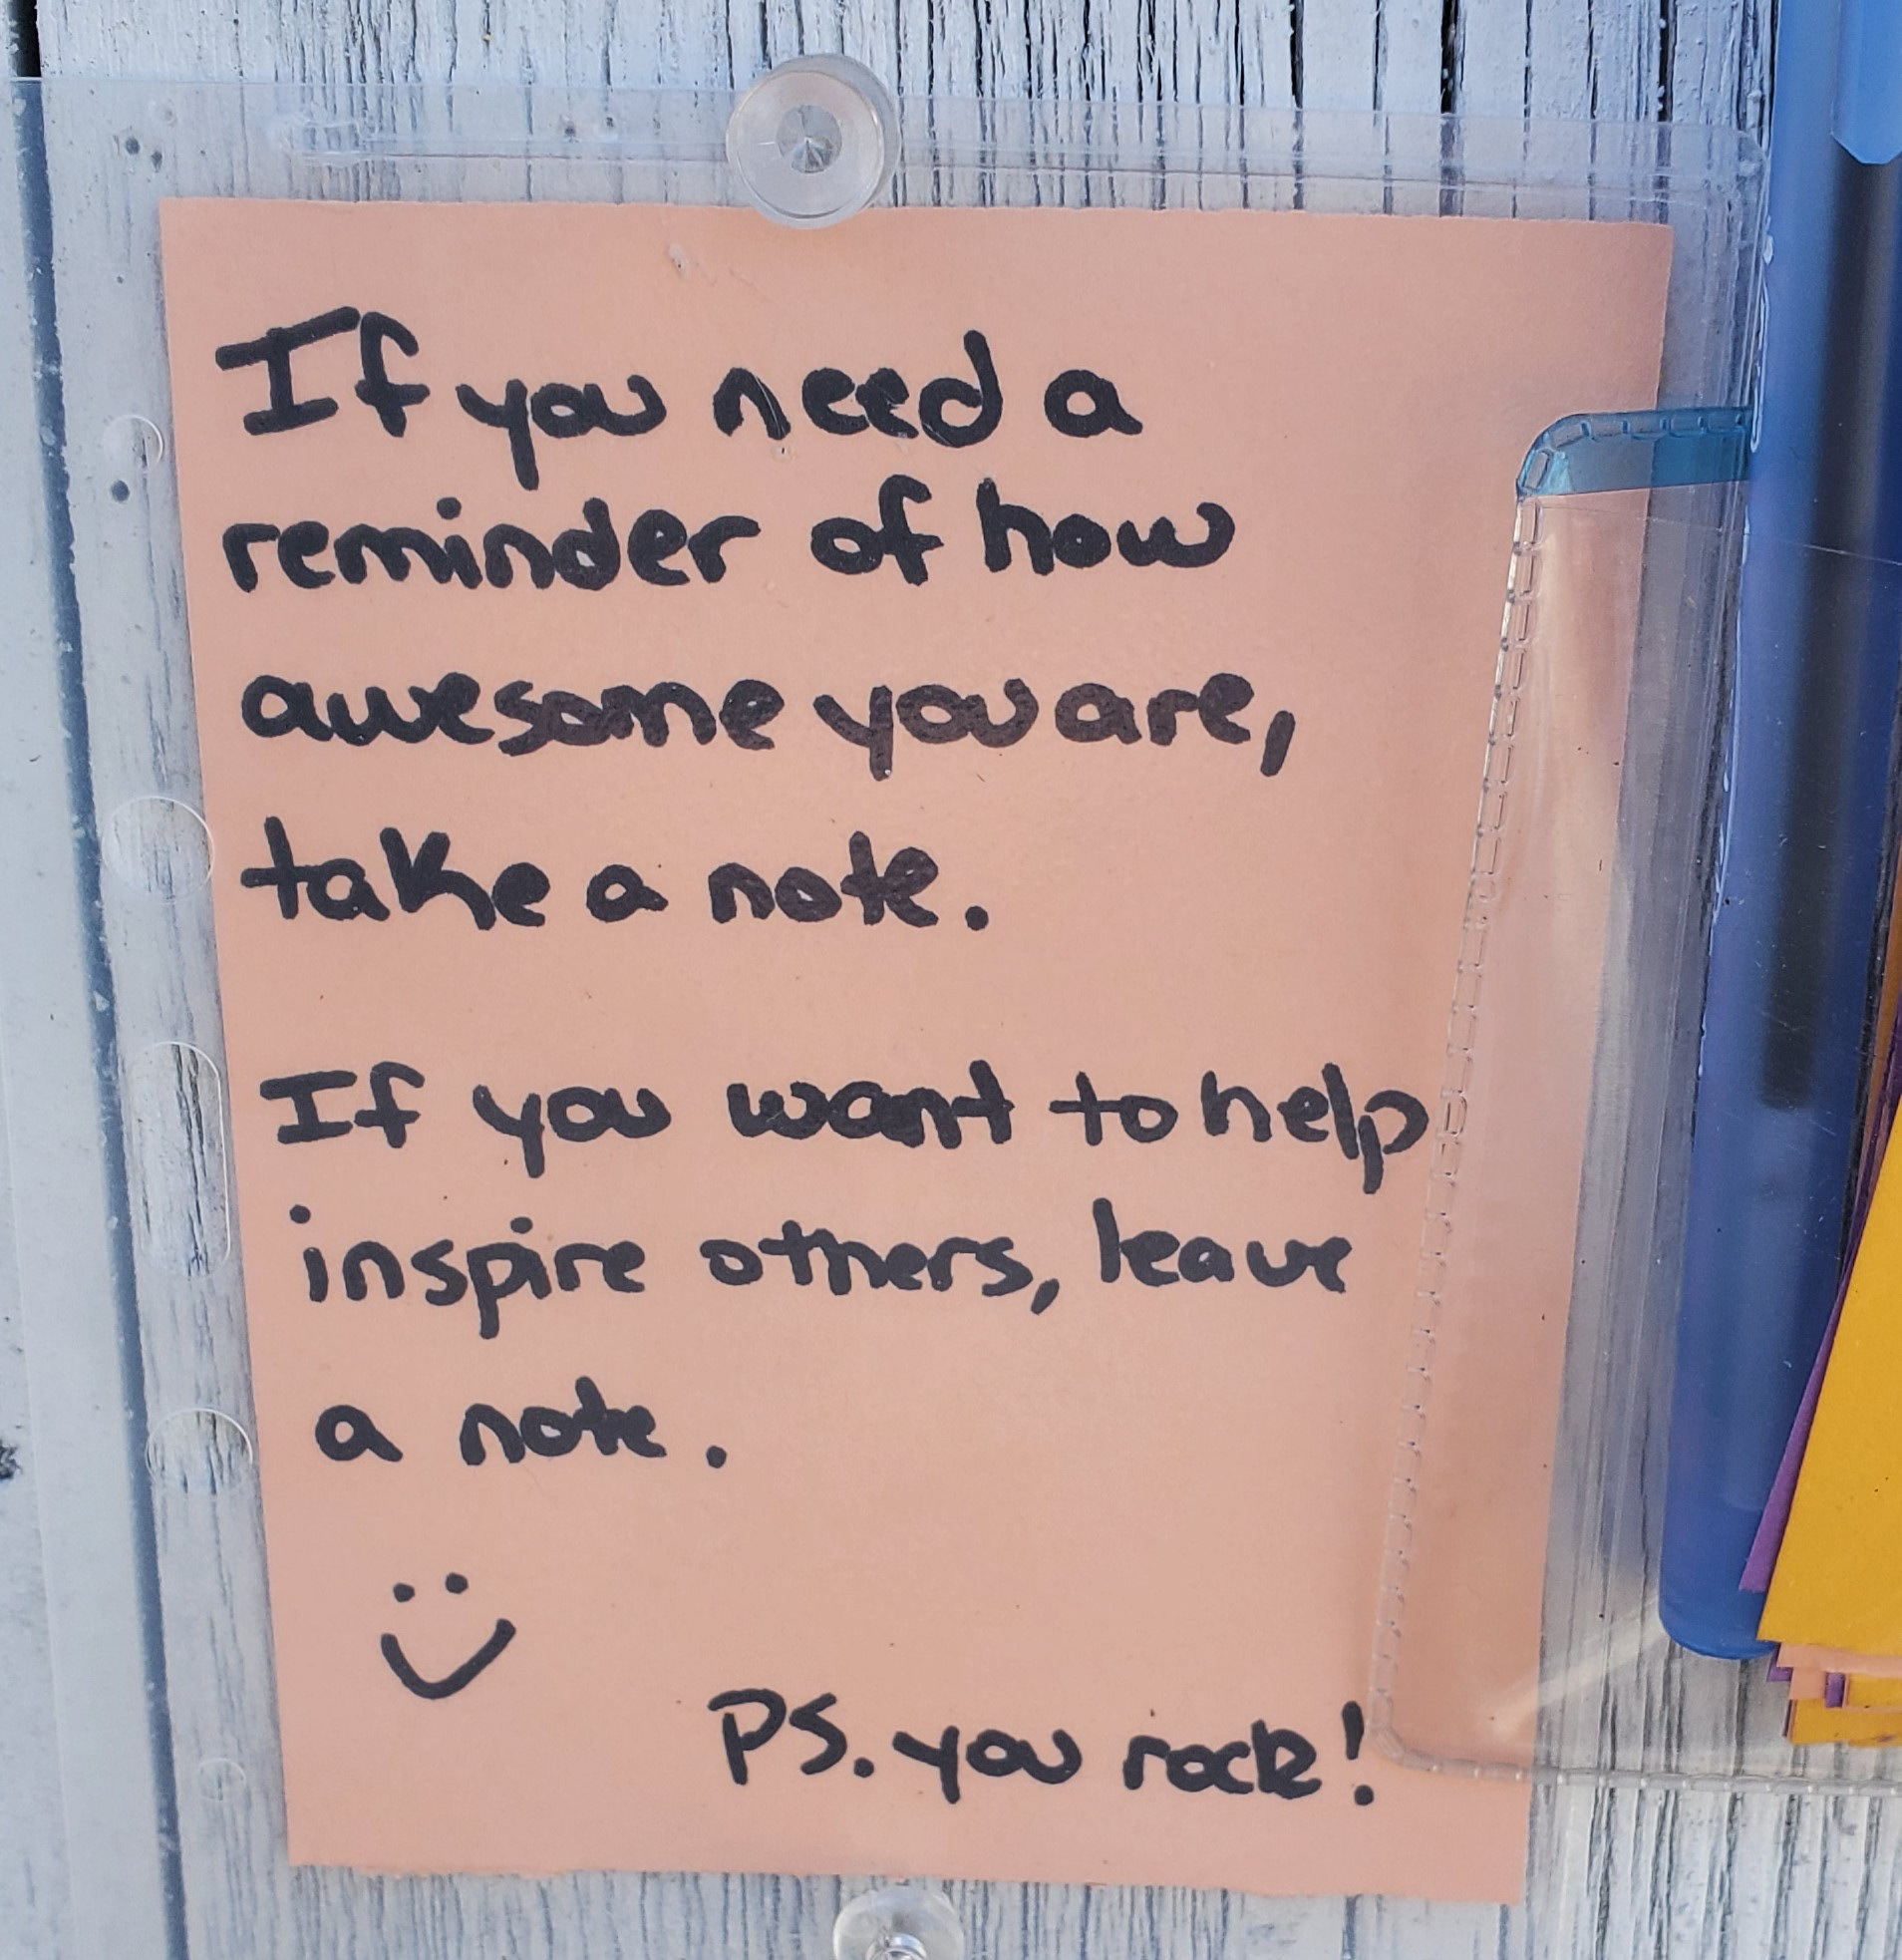 If you need a
reminder of how
awesome you are,
take a note.
If you want to help
inspire others, leave
a note.
PS. you rock!